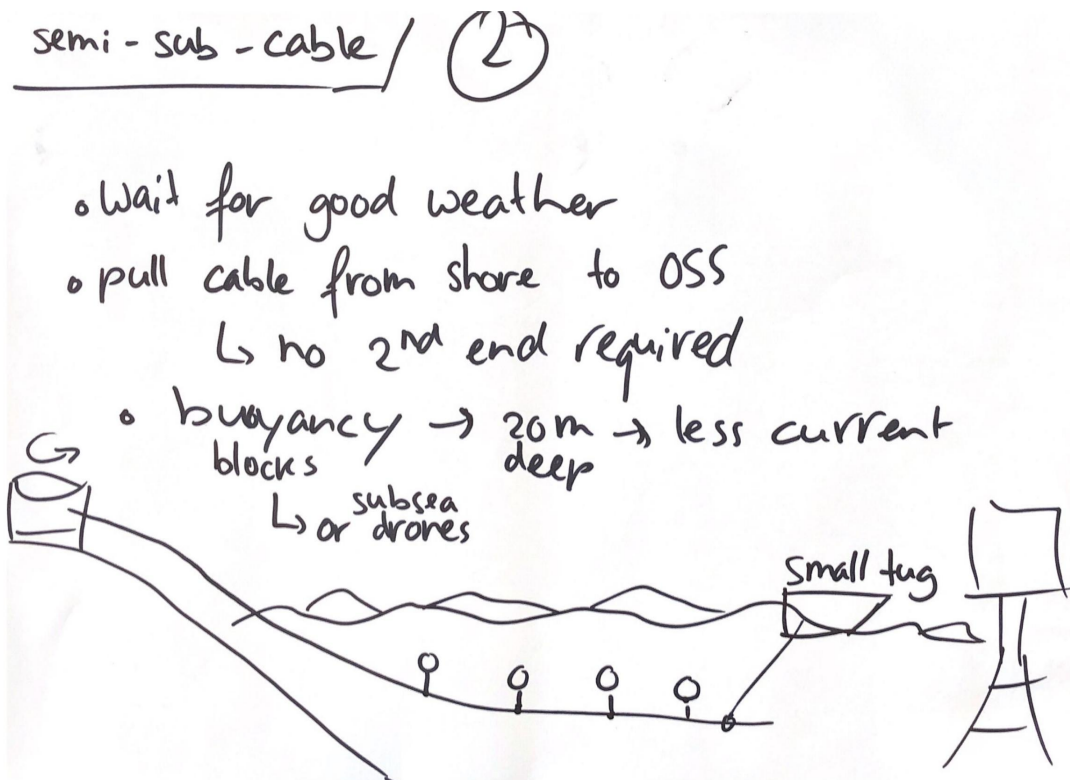 semi-sub-cable/ 2
• wait for good weather
• pull cable from shore to OSS
↳ no 2nd end required
• buoyancy → 20m → less current
blocks deep
↳ or subsea
drones
small tug